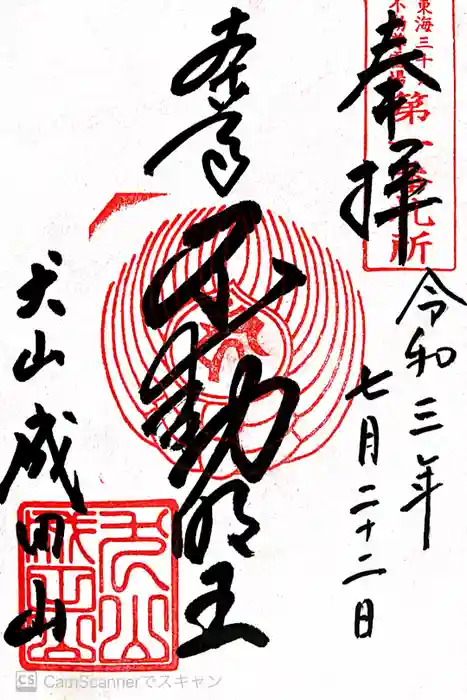 奉拝
東海三十
第一番札所
令和三年
七月二十二日
本尊
不動明王
犬山
成田山
CS CamScannerでスキャン